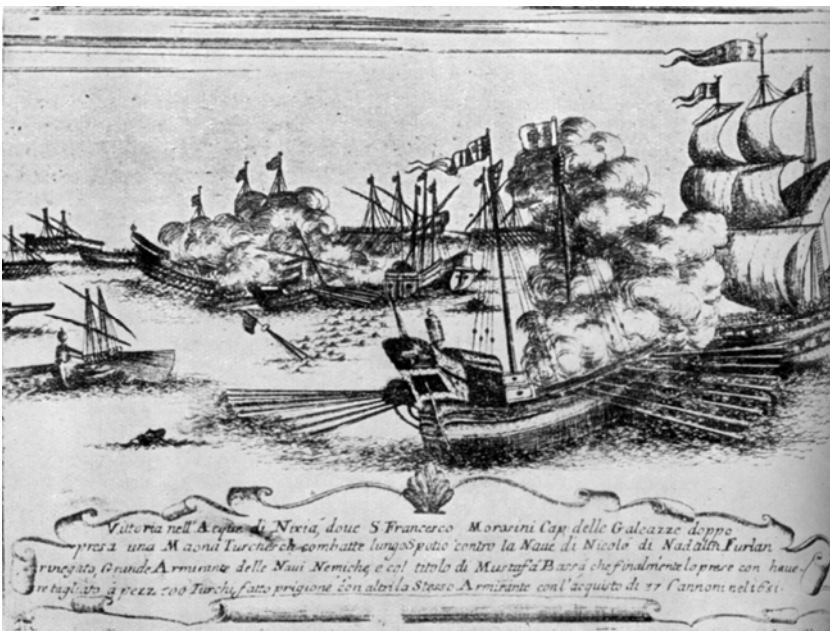 Vittoria nell'Acque di Nixia, doue S. Francesco Morosini Cap. delle Galeazze doppo
presa una Maona Turchesch combatte lungo Spatio contro la Naue di Nicolò di Nadalin Furlan
rinegato, Grande Armirante delle Naui Nemiche, e col titolo di Mustafà Bassà che finalmente lo prese con haue-
re tagliato a pezzi 500 Turchi, fatto prigione con altri la Stesso Armirante con l'acquisto di 77 Cannoni nel 1651.